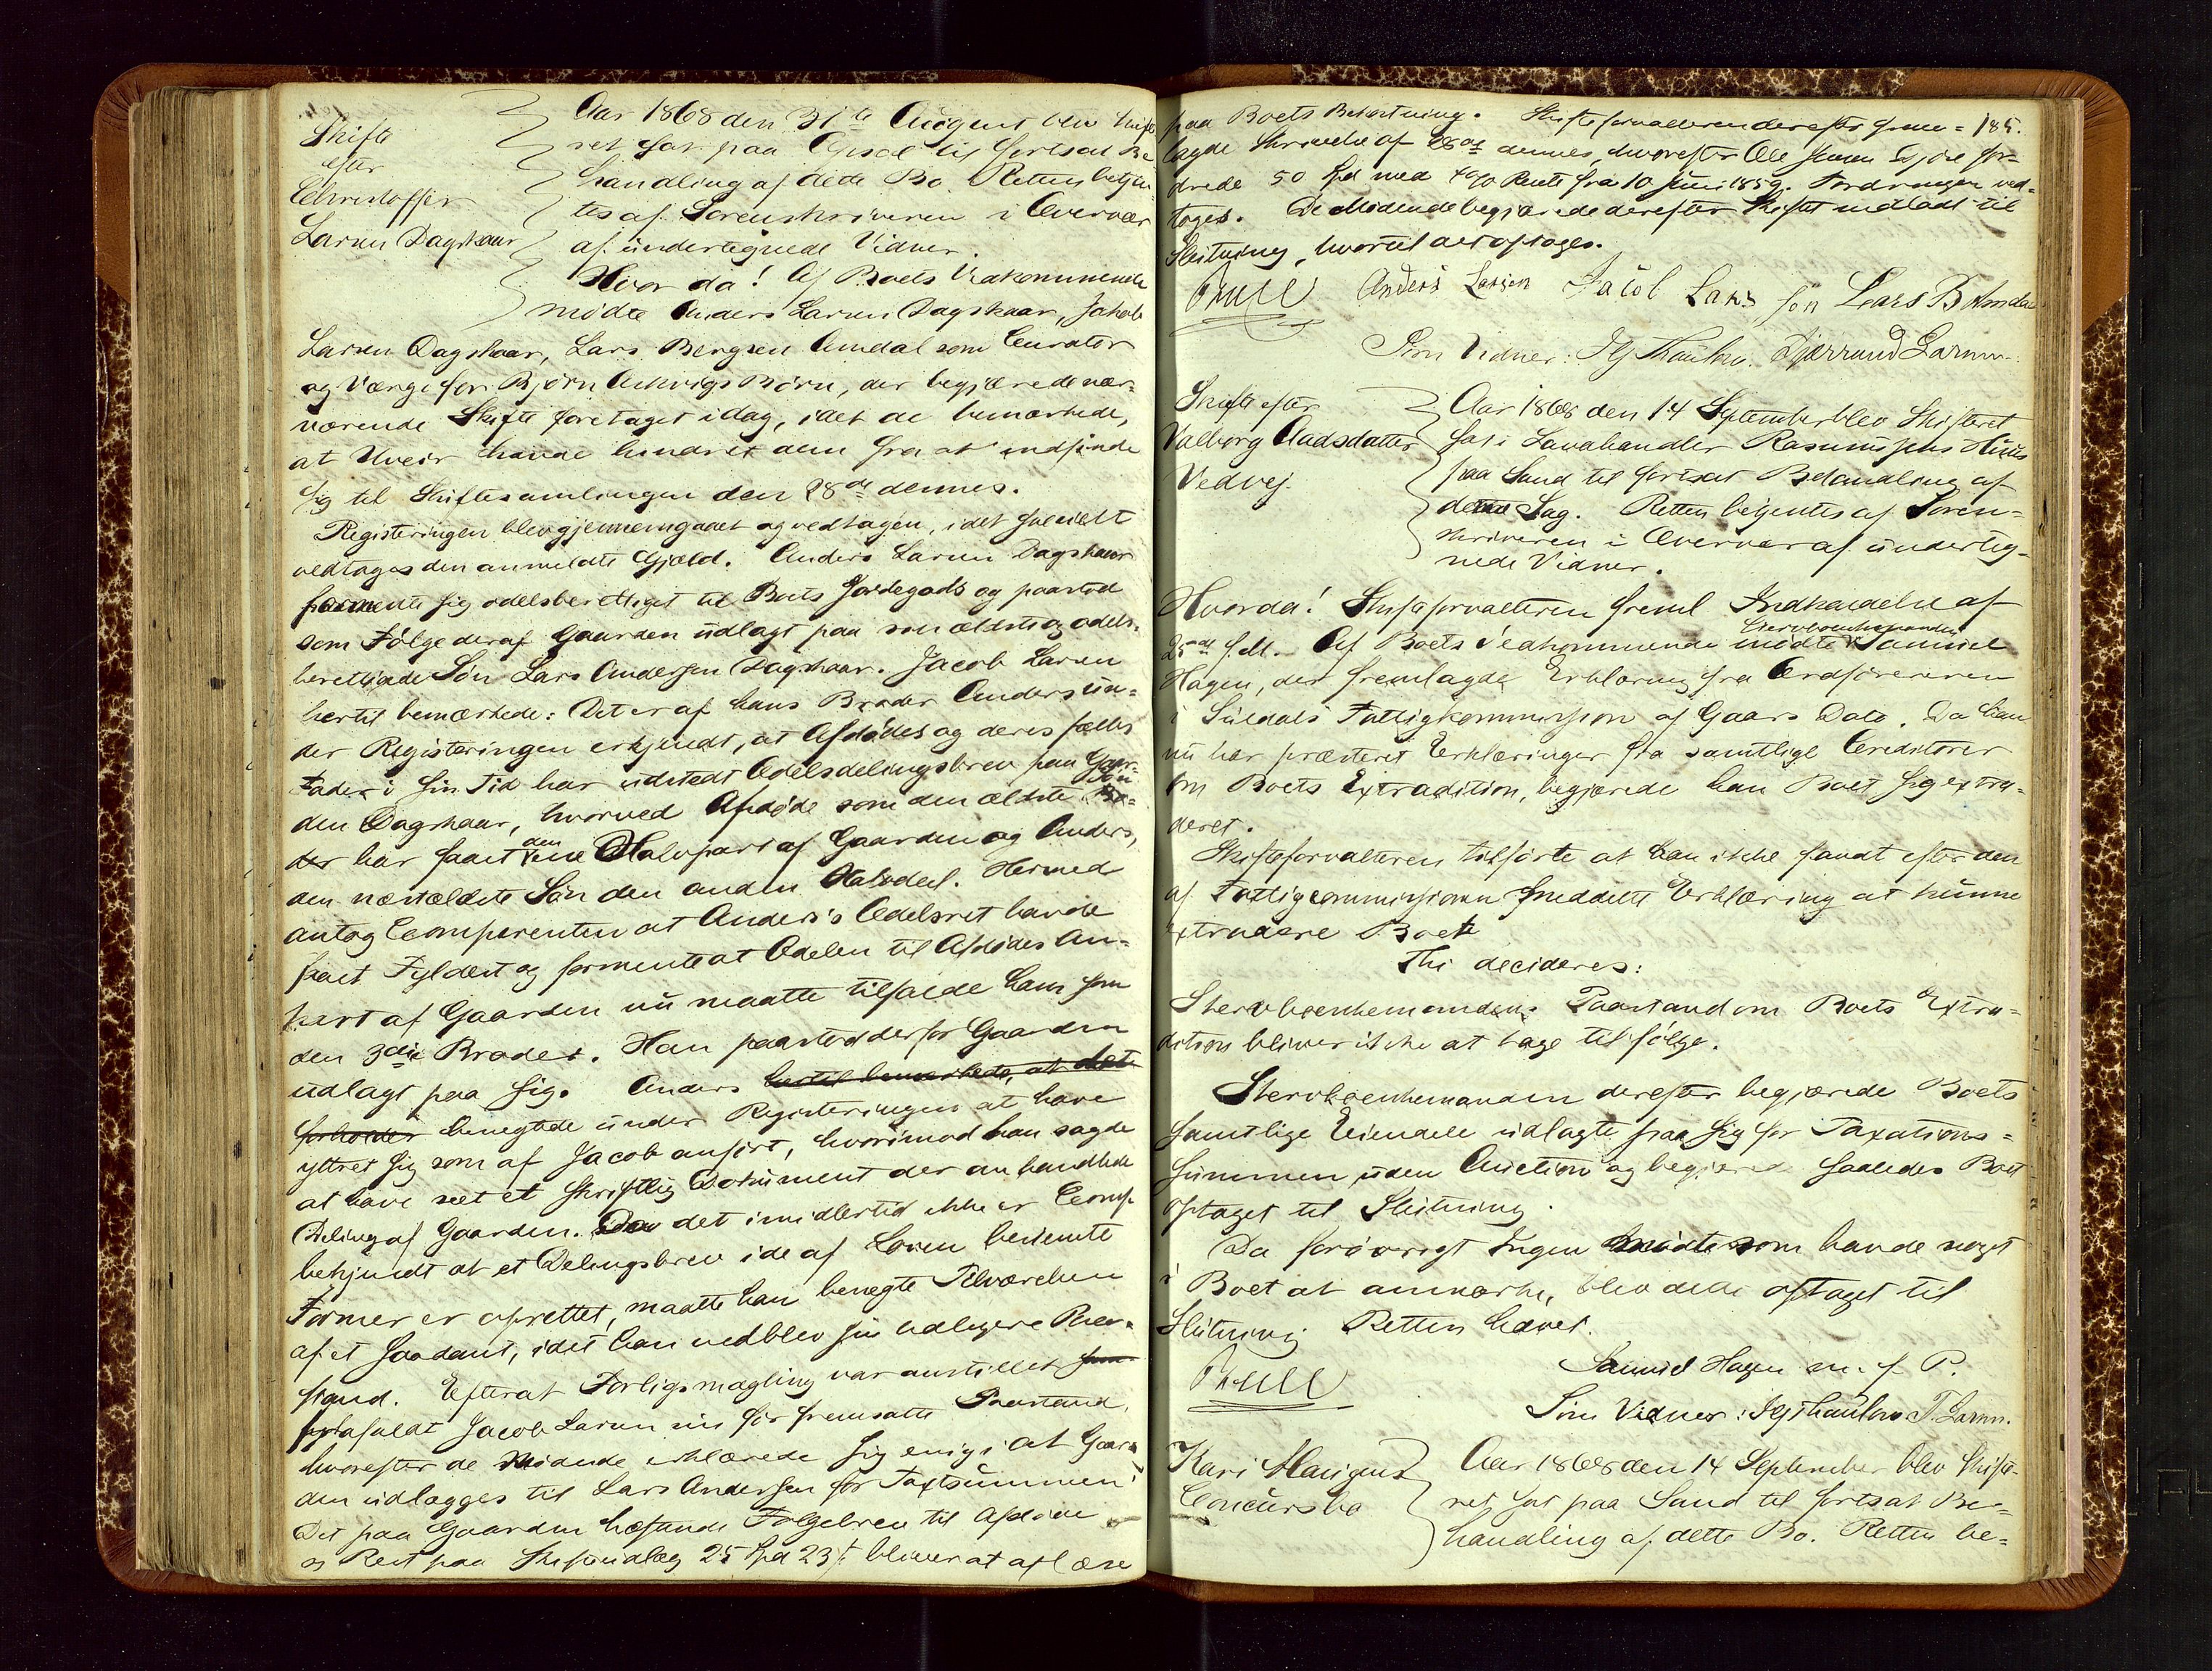 Skifte
efter
Christoffer
Larsen Dagskaar
Aar 1868 den 31te August blev Skifte
ret sat paa til fortsat Be
handling af dette Bo. Retten betjen
tes af Sorenskriveren i Overvær
af undertegnede Vidner.
Hvor da! Af Boets Vedkommende
mødte Anders Larsen Dagskaar, Jakob
Larsen Dagskaar, Lars Bergsen Amdal som Curator
og Værge for Bjørn Børn, der begjærede nær-
værende Skifte foretaget idag, idet de bemærkede,
at Uveir havde hindret dem fra at indfinde
sig til Skiftesamlingen den 28de dennes.
Registeringen blev gjennemgaaet og vedtagen, idet specielt
vedtages den anmeldte Gjæld. Anders Larsen Dagskaar
formente sig odelsberettiget til Boets Jordegods og paastod
som Følge deraf Gaarden udlagt paa sin ældste og odels-
berettigede Søn Lars Andersen Dagskaar. Jacob Larsen
hertil bemærkede: Det er af hans Broder Anders un-
der Registeringen erkjendt, at Afdødes og deres fælles
Fader i sin Tid har udstedt Odelsdelingsbrev paa Gaar-
den Dagskaar, hvorved Afdøde som den ældste Søn
der har faaet den ene Halvpart af Gaarden og Anders,
den næstældste Søn den anden Halvdeel. Hermed
antog Comparenten at Anders's Odelsret havde
faaet Fyldest og formente at Odelen til Afdødes An-
part af Gaarden nu maatte tilfalde ham som
den 3die Broder. Han paastod derfor Gaarden
udlagt paa sig. Anders hertil bemærkede, at det
forholder benegtede under Registeringen at have
yttret sig som af Jacob anført, hvorimod han sagde
at have seet et skriftlig Dokument der omhandlede
Deling af Gaarden. Da det imidlertid ikke er Comp
bekjendt at et Delingsbrev i de af Loven bestemte
Former er oprettet, maatte han benegte Tilværelsen
af et saadant, idet han vedblev sin tidligere Paa-
stand. Efterat Forligsmægling var anstillet
frafaldt Jacob Larsen sin før fremsatte Paastand,
hvorefter de Mødende erklærede sig enig i at Gaar-
den udlægges til Lars Andersen for Taxtsummen
Det paa Gaarden hæftende Følgebrev til Afdøde
og Rest paa 25 Spd 23 s bliver at aflæse
185.
paa Boets Bekostning. Skifteforvalteren derefter frem-
lagde Skrivelse af 28de dennes, hvorefter Ole for-
drede 50 Spd med 4% Rente fra 10 Juni 1859. Fordringen ved-
toges. De Mødende begjærede derefter Skiftet indladt til
Slutning, hvortil det optoges.
Anders Larsen Jacob Lars søn Lars B Amdal
Som Vidner:
Skifte efter
Valborg Aadsdatter
Vedvej.
Aar 1868 den 14 September blev Skifteret
sat i Landhandler Rasmussens Huus
paa Sand til fortsat Behandling af
denne Sag. Retten betjentes af Soren-
skriveren i Overvær af underteg-
nede Vidner.
Hvor da! Skifteforvalteren freml Indkaldelse af
25de f. M. Af Boets Vedkommende mødte Stervboenkemanden Samuel
Hagen, der fremlagde Erklæring fra Ordføreren
i Suldals Fattigkommission af Gaars Dato. Da han
nu har præsteret Erklæringer fra samtlige Creditorer
om Boets Extradition, begjærede han Boet sig extra-
deret.
Skifteforvalteren tilførte at han ikke fandt efter den
af Fattigcommissionen meddelte Erklæring at kunne
extradere Boet
Thi decideres:
Stervboenkemandens Paastand om Boets Extra-
dition bliver ikke at tage til følge.
Stervboenkemanden derefter begjærede Boets
samtlige Eiendele udlagte paa sig for Taxations-
summen uden Auction og begjæred saaledes Boet
optaget til Slutning.
Da forøvrigt Ingen mødte som havde noget
i Boet at anmærke, blev dette optaget til
Slutning Retten hævet.
Samuel Hagen m. f. P.
Som Vidner:
Kari
Concursbo
Aar 1868 den 14 September blev Skifte-
ret sat paa Sand til fortsat Be-
handling af dette Bo. Retten be-